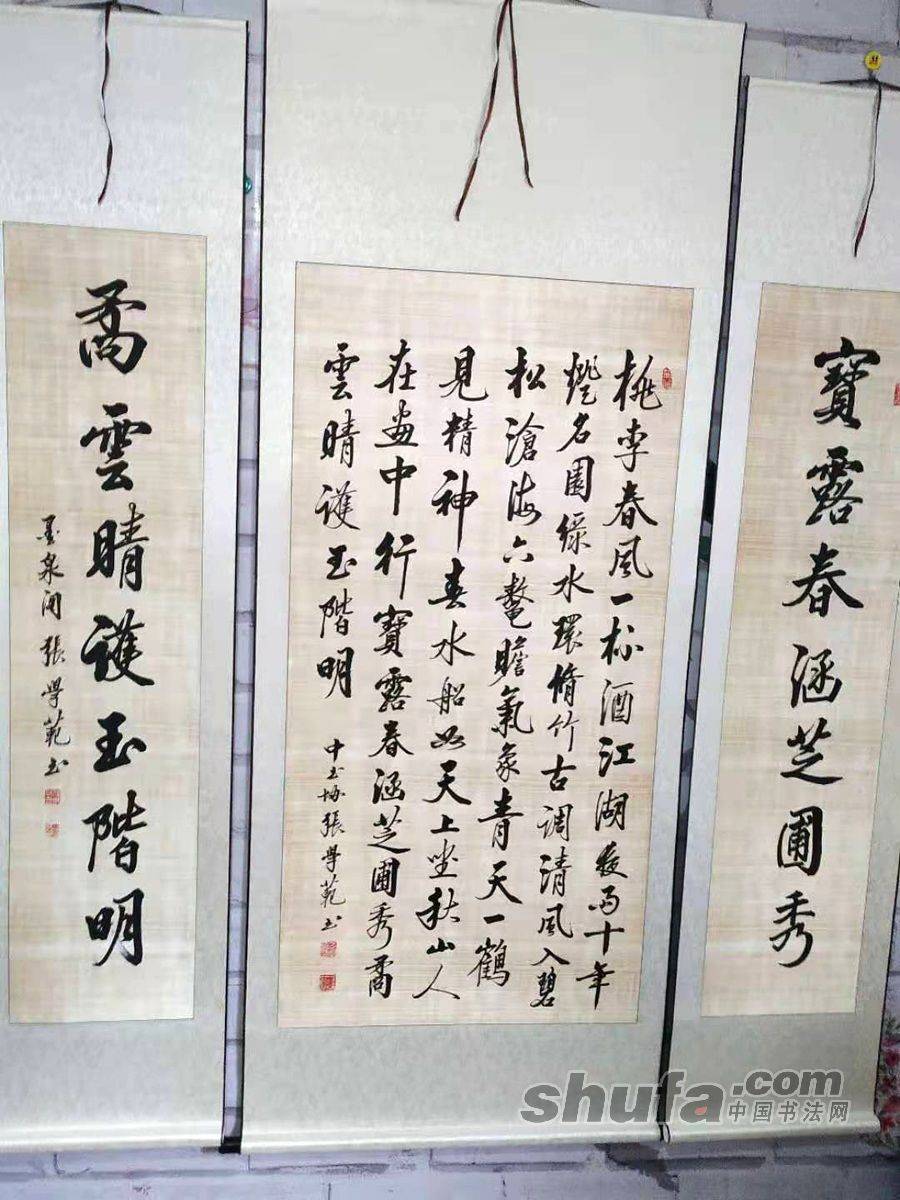 寶露春涵芝圃秀
桃李春風一杯酒江湖夜雨十年
燈名園綠水環脩竹古調清風入碧
松滄海六鼇瞻氣象青天一鶴
見精神春水船如天上坐秋山人
在畫中行寶露春涵芝圃秀矞
雲晴護玉階明
中書協張學範書
矞雲晴護玉階明
墨泉閣張學範書
shufa.com
中国书法网